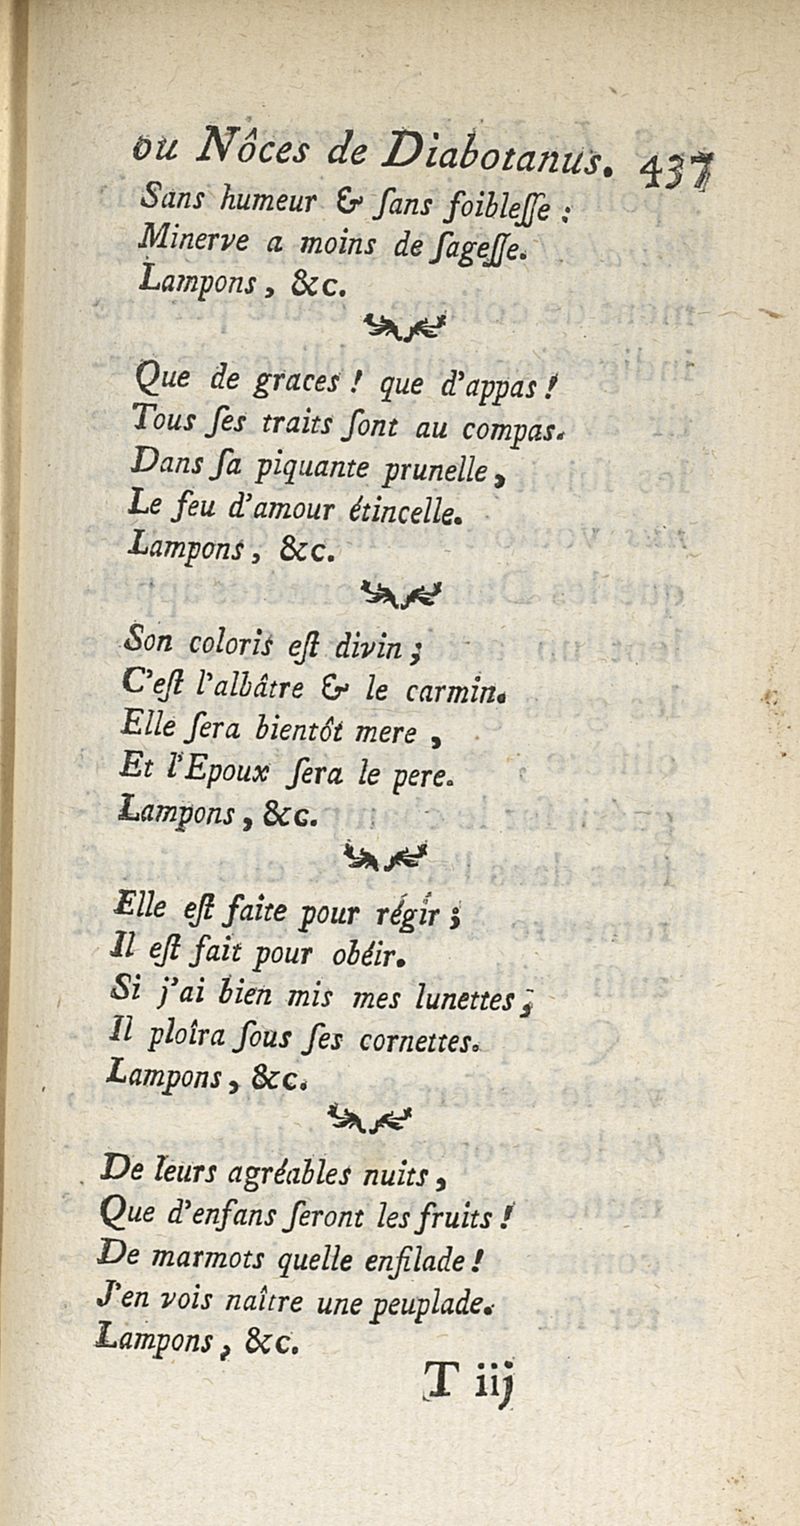 ou Nôces de Diabotanus. 437
Sans humeur & ſans foibleſſe :
Minerve a moins de ſageſſe.
Lampons, &c.
Que de graces ! que d'appas !
Tous ſes traits ſont au compas.
Dans ſa piquante prunelle,
Le feu d'amour étincelle.
Lampons, &c.
Son coloris eſt divin ;
C'eſt l'albâtre & le carmin.
Elle ſera bientôt mere ,
Et l'Epoux ſera le pere.
Lampons, &c.
Elle eſt faite pour régir ;
Il eſt fait pour obéir.
Si j'ai bien mis mes lunettes ;
Il ploîra ſous ſes cornettes.
Lampons, &c.
De leurs agréables nuits,
Que d'enfans ſeront les fruits !
De marmots quelle enfilade !
J'en vois naître une peuplade.
Lampons, &c.
T iij